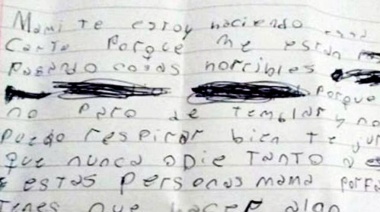 Mami te estoy haciendo esta
Carta Porque me están
Pasando cosas horribles
Porque
no Paro de temblar y no
Puedo respirar bien te jur
que nunca odie TanTo a
estas Personas mama Porfa
Tenes que hacer algo